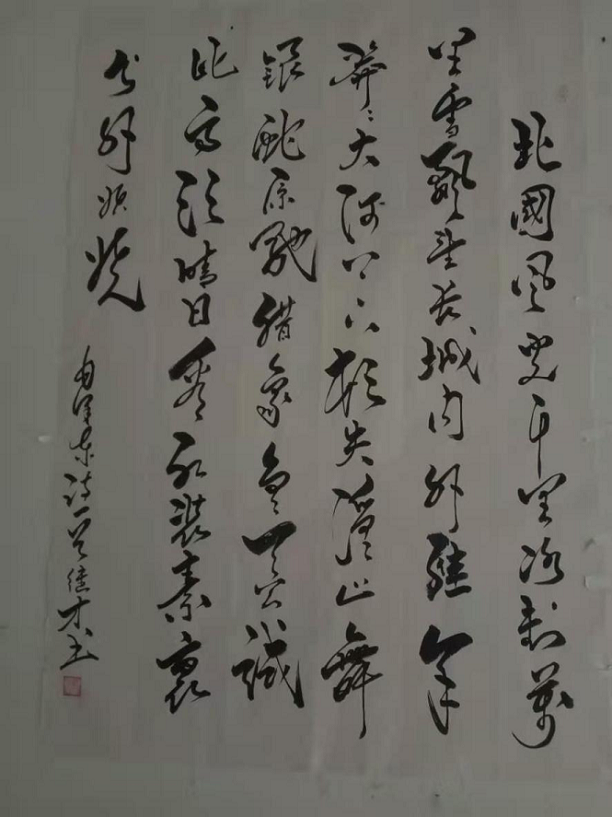 北國风光千里冰封萬
里雪飘望长城内外惟余
莽々大河上下顿失滔々山舞
银蛇原驰腊象欲与天公试
比高须晴日看红装素裹
分外妖娆
毛泽东诗一首佳才书